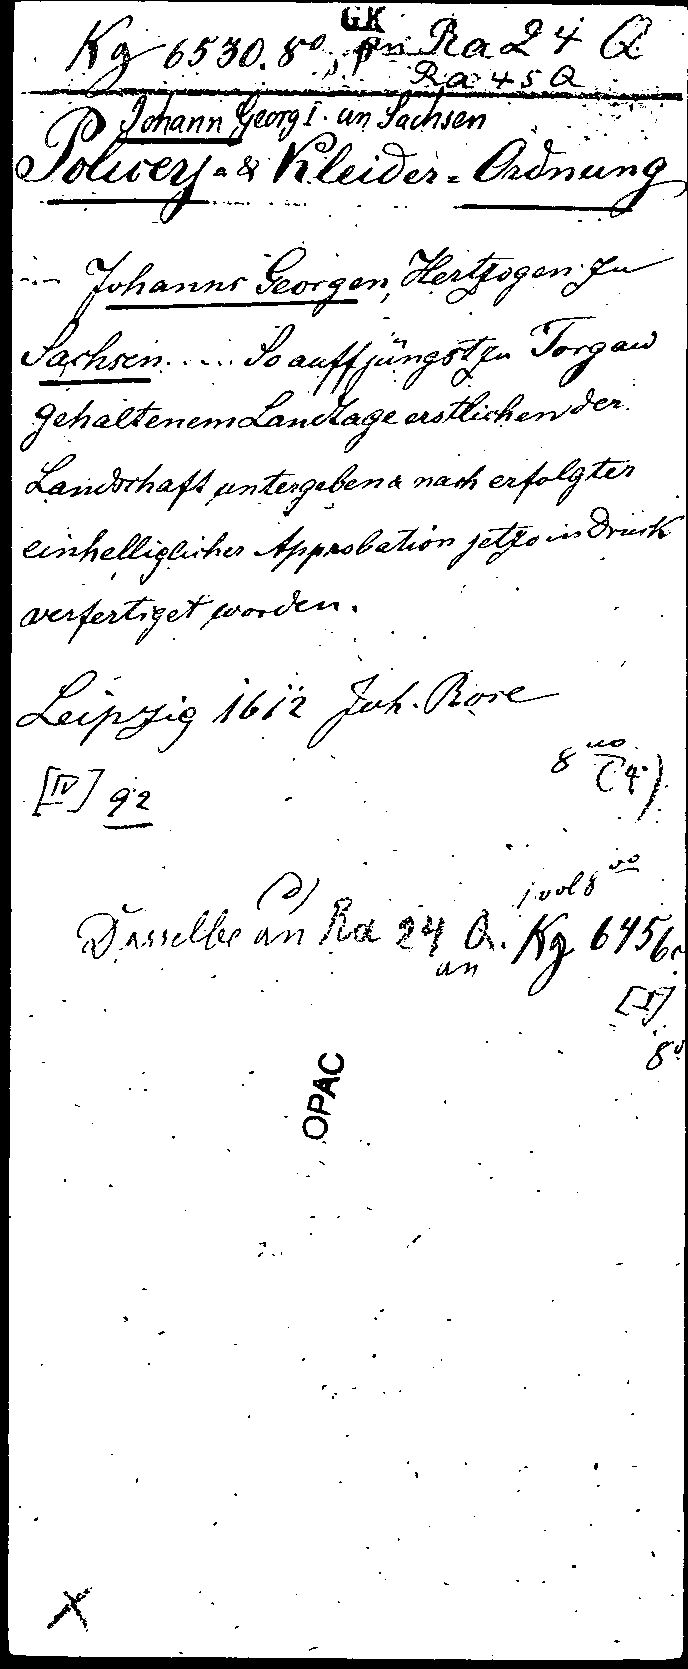 GK
Kg 6530. 8°, an Ra 24 Q
Ra 45 Q
Johann Georg I. in Sachsen
Policey- & Kleider-Ordnung
... Johanns Georgen, Hertzogen zu
Sachsen ..... So auff jüngst zu Torgau
gehaltenem Landtage erstlichen der
Landschaft untergeben & nach erfolgter
einhelliglicher Approbation jetzo in Druck
verfertiget worden.
Leipzig 1612 Joh. Rose
8 vo (4°)
[IV] 92
(2) 1 vol 8 vo
Dasselbe an Ra 24 Q. Kg 6456.
an
[I]
8°
OPAC
X